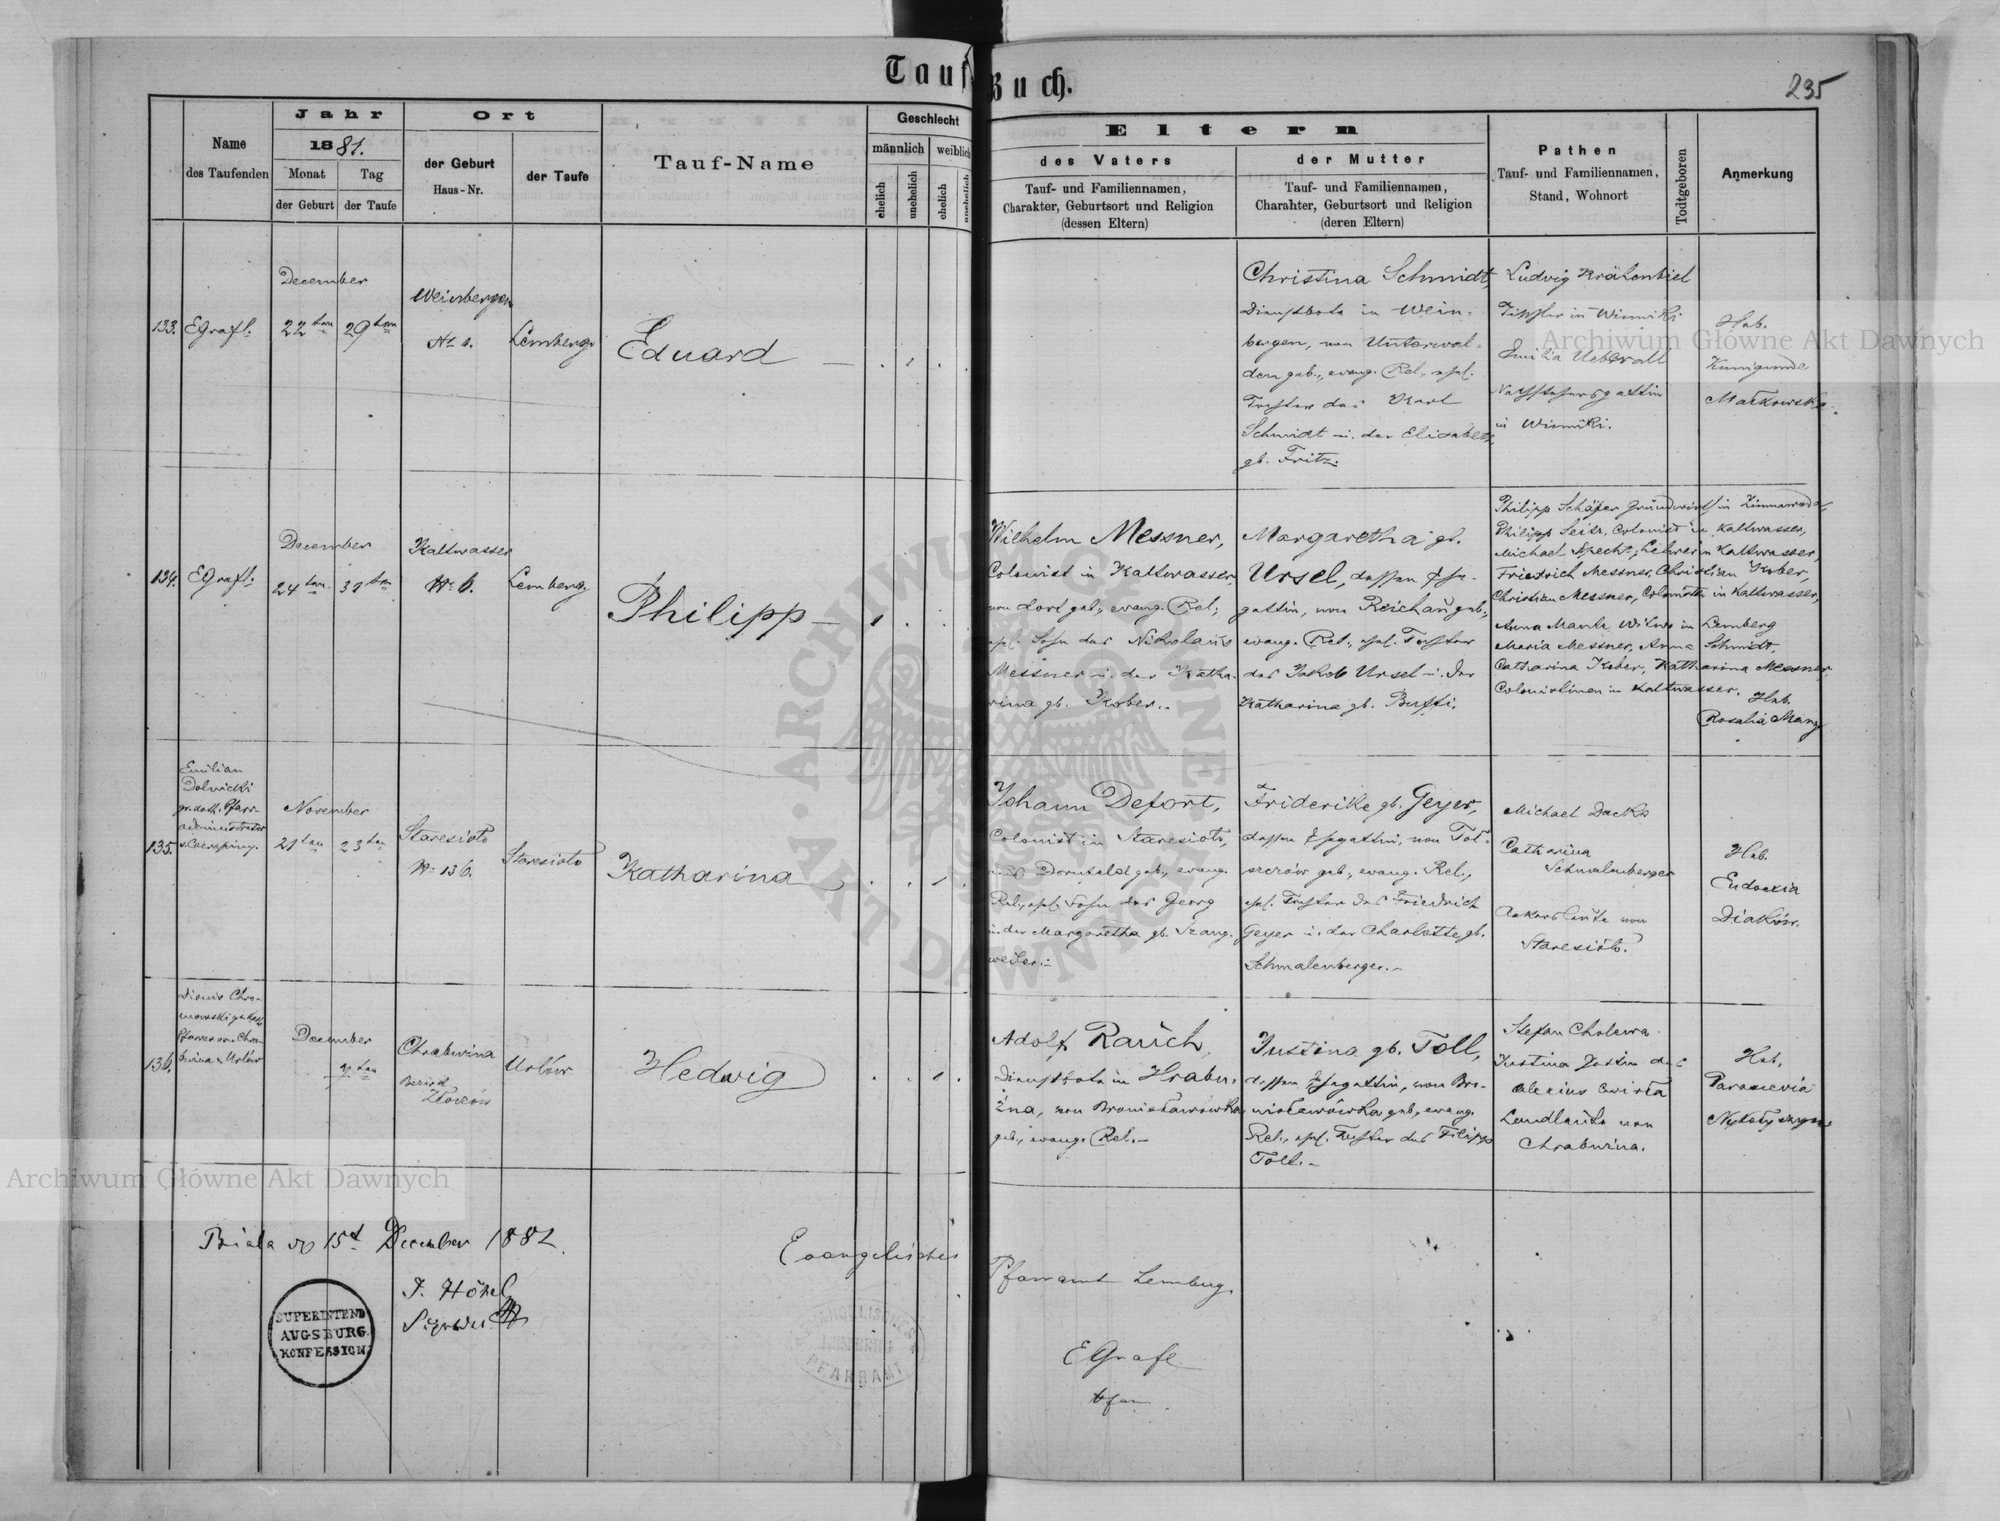 Tauf-Buch.
235
Name
des Taufenden
Jahr
1881.
Monat
Tag
der Geburt
der Taufe
Ort
der Geburt
Haus-Nr.
der Taufe
Tauf-Name
Geschlecht
männlich
weiblich
ehelich
unehelich
ehelich
unehelich
Eltern
des Vaters
Tauf- und Familiennamen,
Charakter, Geburtsort und Religion
(dessen Eltern)
der Mutter
Tauf- und Familiennamen,
Charahter, Geburtsort und Religion
(deren Eltern)
Pathen
Tauf- und Familiennamen,
Stand, Wohnort
Todtgeboren
Anmerkung
133.
EGrafl:
December
22ten
29ten
Weinbergen
Lemberg
Eduard
Christina Schmidt,
Dienstbote in Wein-
bergen, von Unterwal-
den geb., evang. Rel., ehel.
Tochter des Karl
Schmidt u. der Elisabeth
gb. Fritz.
Ludwig Krähenbiel
Tischler in Winniki
Emilia Ueberall
in Winniki.
Heb.
Kunigunde
Markowska
134.
EGrafl:
December
24ten
Kaltwasser
Nr. 6.
Lemberg
Philipp
Wilhelm Messner,
Colonist in Kaltwasser,
von dort geb., evang. Rel.,
ehel. Sohn des Nikolaus
Messner u. der Katha-
rina gb. Kober.
Margaretha gb.
Ursel, dessen Ehe-
gattin, von Reichau geb.,
evang. Rel., ehel. Tochter
des Jakob Ursel u. der
Katharina gb. Buffi.
Philipp Schäfer Grundwirth in Zimnawoda,
Philipp Seitz, Colonist in Kaltwasser,
Michael Specht, Lehrer in Kaltwasser,
Friedrich Messner, Christian Kober,
Christian Messner, Colonisten in Kaltwasser,
Anna Manz Witwe in Lemberg
Maria Messner, Anna Schmidt,
Catharina Kober, Katharina Messner
Colonistinen in Kaltwasser.
Heb.
Rosalia Manz
135.
Emilian
Dolnicki
gr. kath. Pfarr-
administrator
November
21ten
23ten
Staresioło
Nr. 136.
Staresioło
Katharina
Johann Defort,
Colonist in Staresioło,
Dornfeld geb., evang.
Rel., ehel. Sohn des Georg
u. der Margaretha gb. Szang-
weiler.
Friderike gb. Geyer,
dessen Ehegattin, von Toł-
szczów geb., evang. Rel.,
ehel. Tochter des Friedrich
Geyer u. der Charlotte gb.
Schmalenberger.
Michael Dacko
Catharina
Schmalenberger
Ackersleute von
Staresioło.
Heb.
Eudoxia
Diaków.
136.
Dionis Chro-
mowski gr. kath.
December
Chrabuzna
Bezirk
Złoczów
Urlów
Hedwig
Adolf Rauch,
Dienstbote in Hrabu-
zna, von Bronisławówka
geb., evang. Rel.
Justina gb. Toll,
dessen Ehegattin, von Bro-
nisławówka geb., evang.
Rel., ehel. Tochter des Filipp
Toll.
Stefan Cholewa
Justina Gattin des
Alexius Cwirla
Landleute von
Chrabuzna.
Heb.
Parascevia
Biala den 15t December 1882.
J. Hönel
SUPERINTEND
AUGSBURG.
KONFESSION
Evangelisches
Pfarramt Lemberg.
EGrafl
Archiwum Główne Akt Dawnych
Archiwum Główne Akt Dawnych
ARCHIWUM GŁÓWNE AKT DAWNYCH